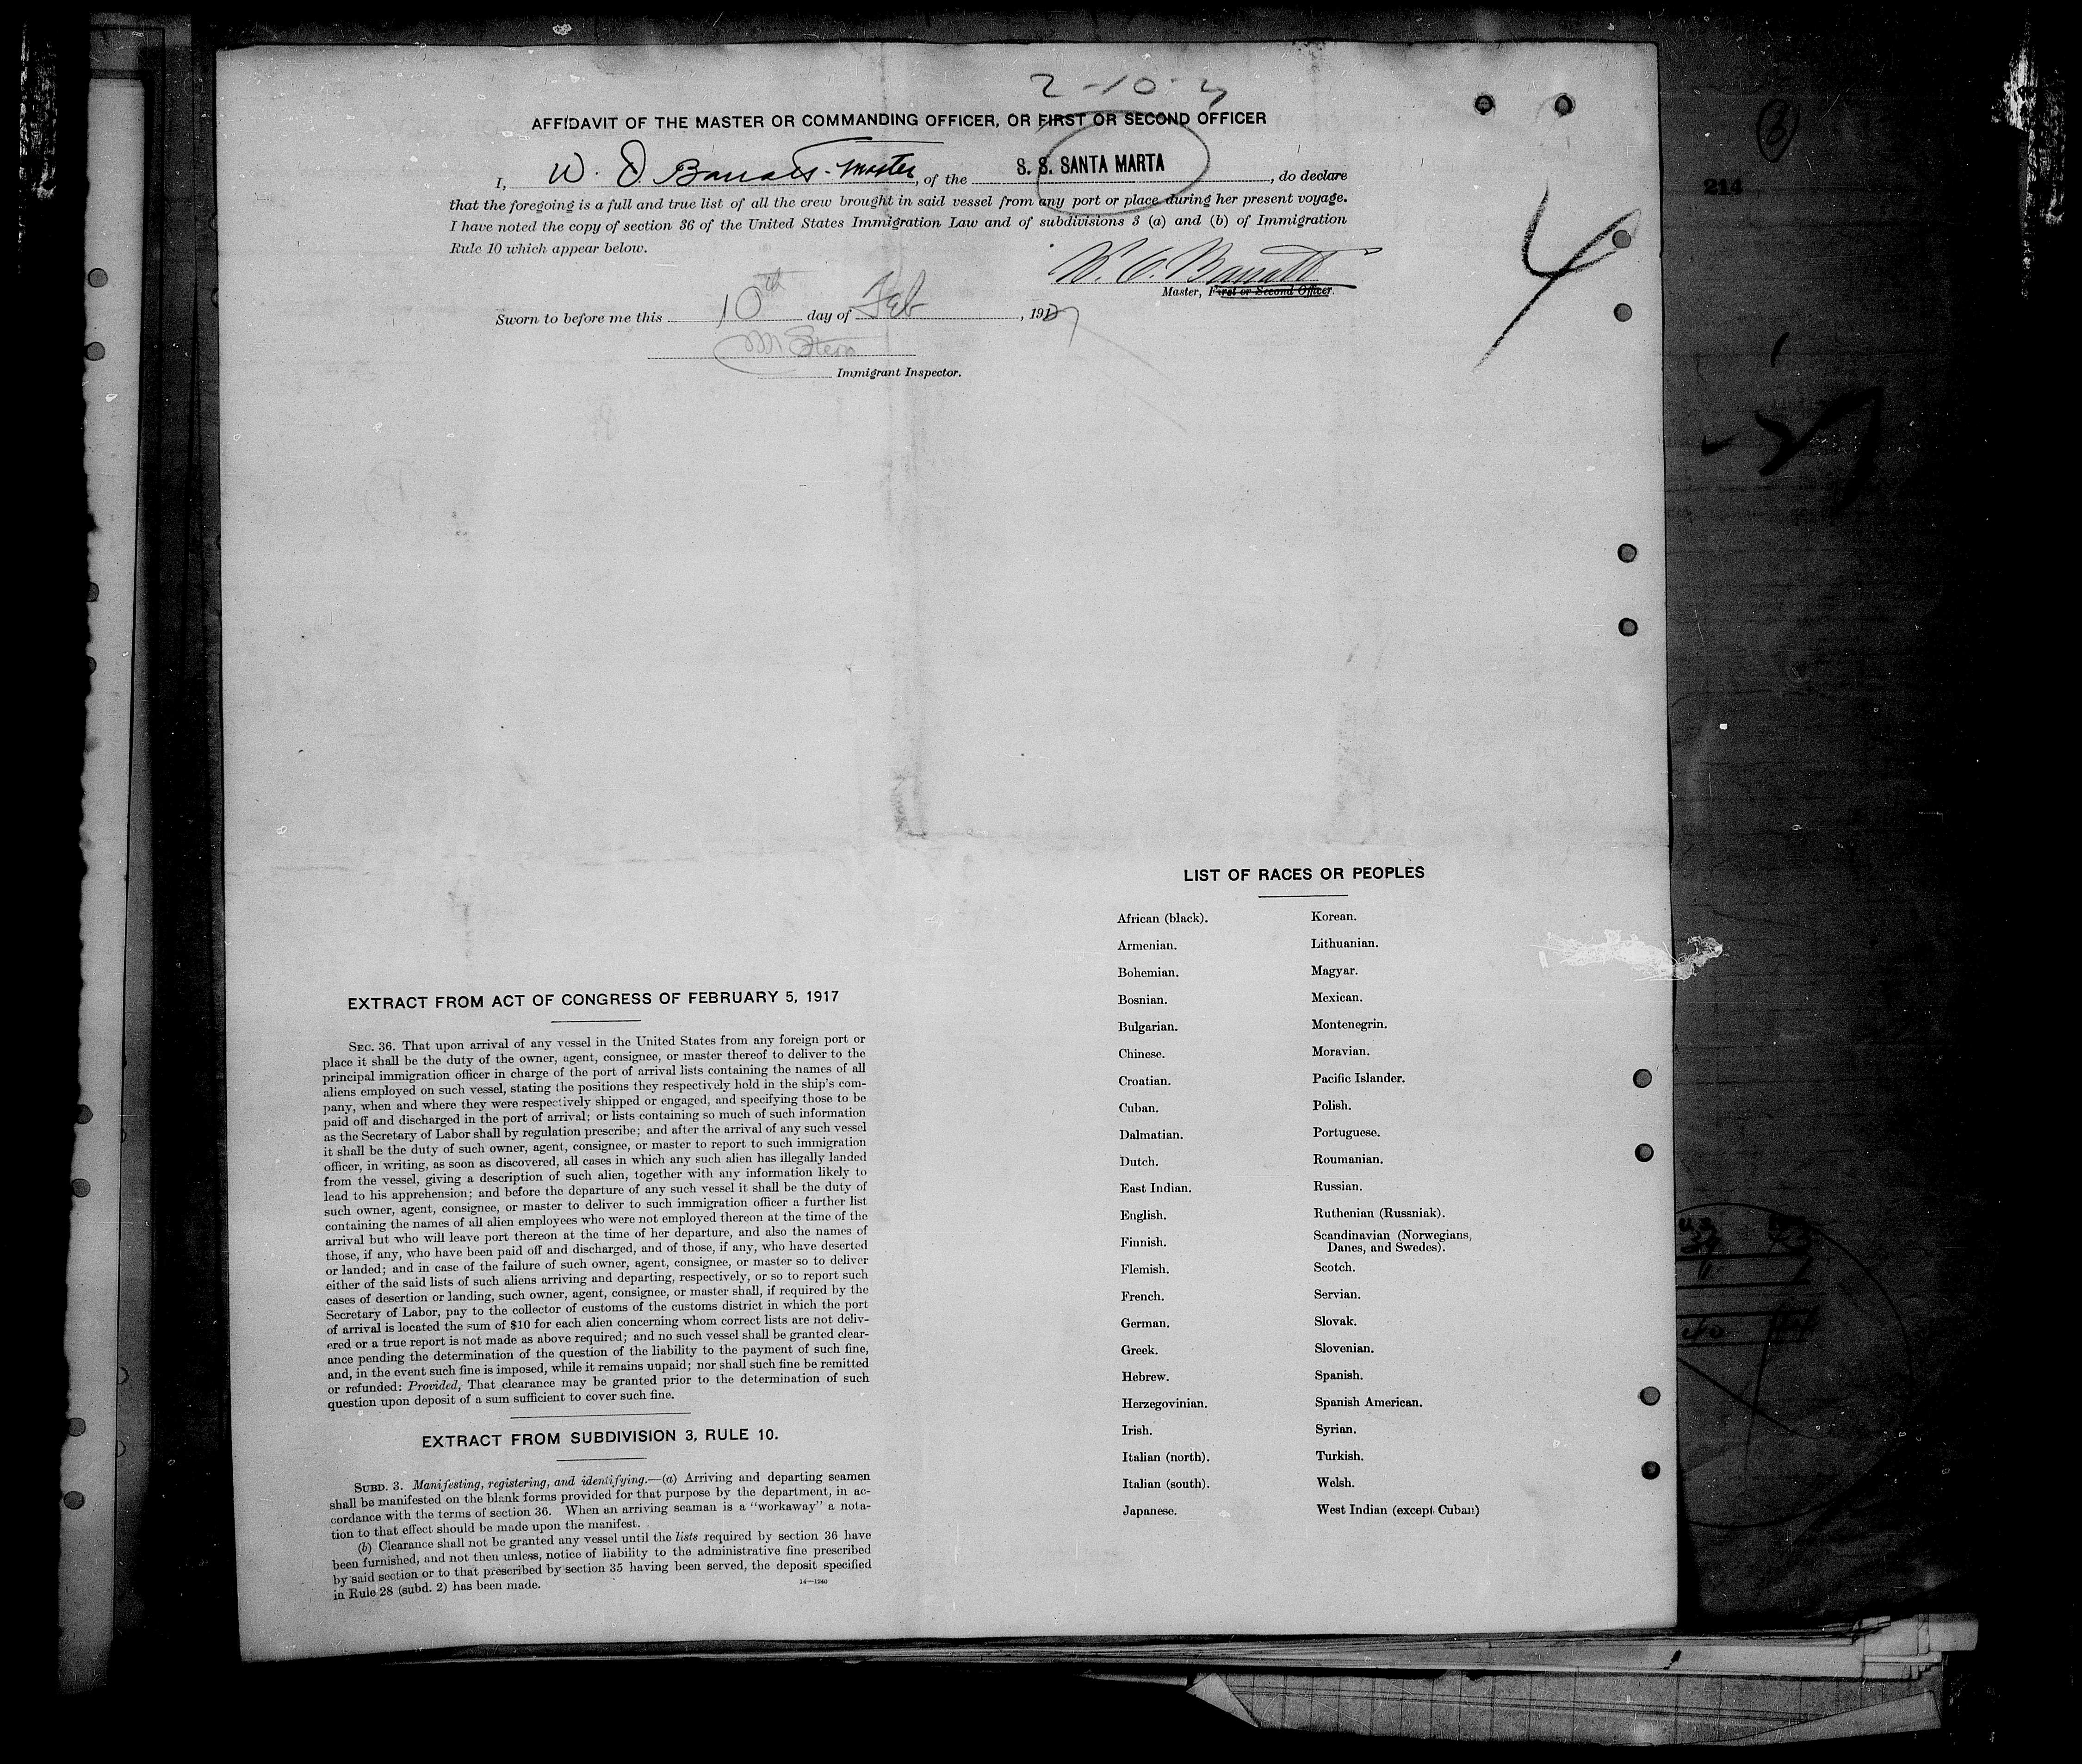 2-10-
AFFIDAVIT OF THE MASTER OR COMMANDING OFFICER, OR FIRST OR SECOND OFFICER
I, W. O. Barrett - Master, of the S. S. SANTA MARTA, do declare
that the foregoing is a full and true list of all the crew brought in said vessel from any port or place during her present voyage.
I have noted the copy of section 36 of the United States Immigration Law and of subdivisions 3 (a) and (b) of Immigration
Rule 10 which appear below.
Barrett
Master, First or Second Officer.
Sworn to before me this 10th day of Feb, 19
M Stern
Immigrant Inspector.
4
3
214
LIST OF RACES OR PEOPLES
African (black).
Armenian.
Bohemian.
Bosnian.
Bulgarian.
Chinese.
Croatian.
Cuban.
Dalmatian.
Dutch.
East Indian.
English.
Finnish.
Flemish.
French.
German.
Greek.
Hebrew.
Herzegovinian.
Irish.
Italian (north).
Italian (south).
Japanese.
Korean.
Lithuanian.
Magyar.
Mexican.
Montenegrin.
Moravian.
Pacific Islander.
Polish.
Portuguese.
Roumanian.
Russian.
Ruthenian (Russniak).
Scandinavian (Norwegians,
Danes, and Swedes).
Scotch.
Servian.
Slovak.
Slovenian.
Spanish.
Spanish American.
Syrian.
Turkish.
Welsh.
West Indian (except Cuban)
EXTRACT FROM ACT OF CONGRESS OF FEBRUARY 5, 1917
SEC. 36. That upon arrival of any vessel in the United States from any foreign port or
place it shall be the duty of the owner, agent, consignee, or master thereof to deliver to the
principal immigration officer in charge of the port of arrival lists containing the names of all
aliens employed on such vessel, stating the positions they respectively hold in the ship's com-
pany, when and where they were respectively shipped or engaged, and specifying those to be
paid off and discharged in the port of arrival; or lists containing so much of such information
as the Secretary of Labor shall by regulation prescribe; and after the arrival of any such vessel
it shall be the duty of such owner, agent, consignee, or master to report to such immigration
officer, in writing, as soon as discovered, all cases in which any such alien has illegally landed
from the vessel, giving a description of such alien, together with any information likely to
lead to his apprehension; and before the departure of any such vessel it shall be the duty of
such owner, agent, consignee, or master to deliver to such immigration officer a further list
containing the names of all alien employees who were not employed thereon at the time of the
arrival but who will leave port thereon at the time of her departure, and also the names of
those, if any, who have been paid off and discharged, and of those, if any, who have deserted
or landed; and in case of the failure of such owner, agent, consignee, or master so to deliver
either of the said lists of such aliens arriving and departing, respectively, or so to report such
cases of desertion or landing, such owner, agent, consignee, or master shall, if required by the
Secretary of Labor, pay to the collector of customs of the customs district in which the port
of arrival is located the sum of $10 for each alien concerning whom correct lists are not deliv-
ered or a true report is not made as above required; and no such vessel shall be granted clear-
ance pending the determination of the question of the liability to the payment of such fine,
and, in the event such fine is imposed, while it remains unpaid; nor shall such fine be remitted
or refunded: Provided, That clearance may be granted prior to the determination of such
question upon deposit of a sum sufficient to cover such fine.
EXTRACT FROM SUBDIVISION 3, RULE 10.
SUBD. 3. Manifesting, registering, and identifying.—(a) Arriving and departing seamen
shall be manifested on the blank forms provided for that purpose by the department, in ac-
cordance with the terms of section 36. When an arriving seaman is a "workaway" a nota-
tion to that effect should be made upon the manifest.
(b) Clearance shall not be granted any vessel until the lists required by section 36 have
been furnished, and not then unless, notice of liability to the administrative fine prescribed
by said section or to that prescribed by section 35 having been served, the deposit specified
in Rule 28 (subd. 2) has been made.
14—1240